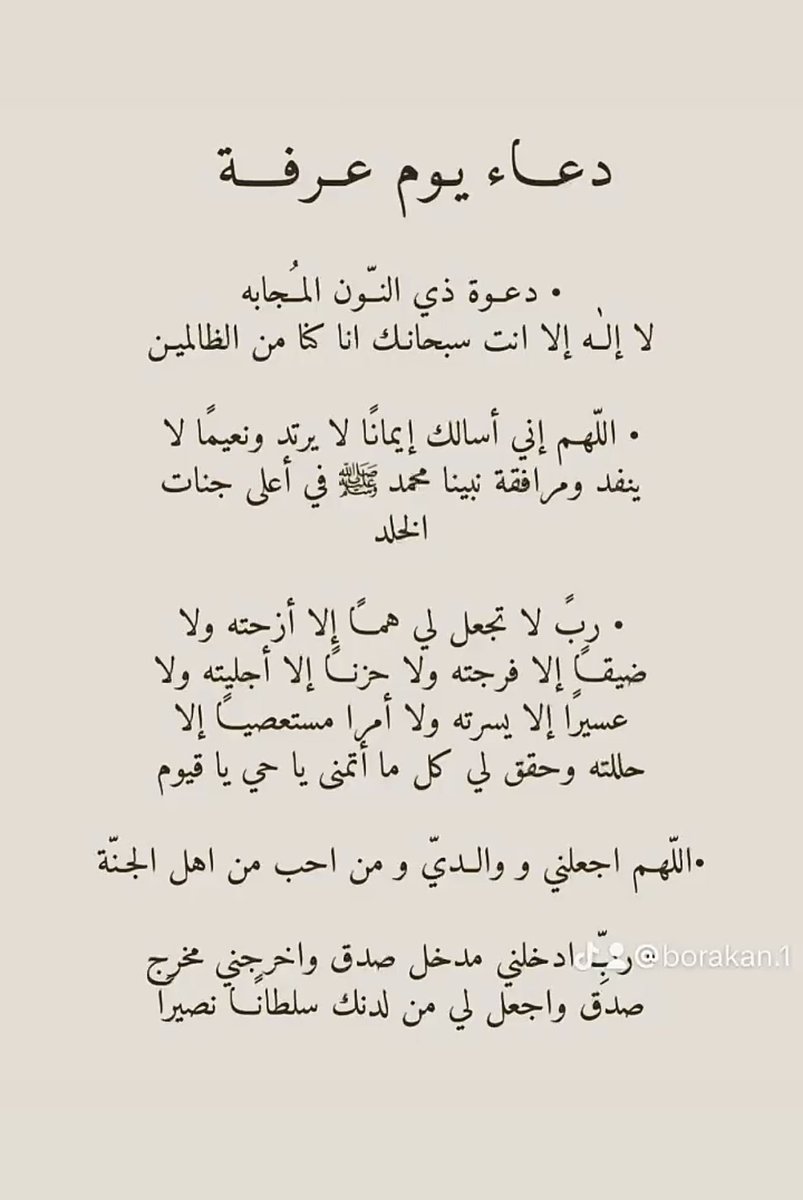 دعاء يوم عرفة
• دعوة ذي النّون المُجابه
لا إلٰه إلا انت سبحانك انا كنا من الظالمين
• اللّهم إني أسالك إيمانًا لا يرتد ونعيمًا لا
ينفد ومرافقة نبينا محمد ﷺ في أعلى جنات
الخلد
• ربً لا تجعل لي همًا إلا أزحته ولا
ضيقًا إلا فرجته ولا حزنًا إلا أجليته ولا
عسيرًا إلا يسرته ولا أمرا مستعصيًا إلا
حللته وحقق لي كل ما أتمنى يا حي يا قيوم
•اللّهم اجعلني و والديّ و من احب من اهل الجنّة
• ربِّ ادخلني مدخل صدق واخرجني مخرج
صدق واجعل لي من لدنك سلطانًا نصيرًا
@borakan.1